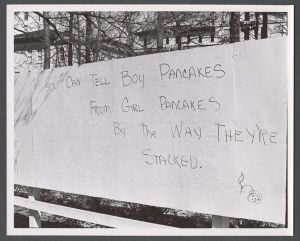 You Can Tell Boy Pancakes
From Girl Pancakes
By The Way They're
Stacked.